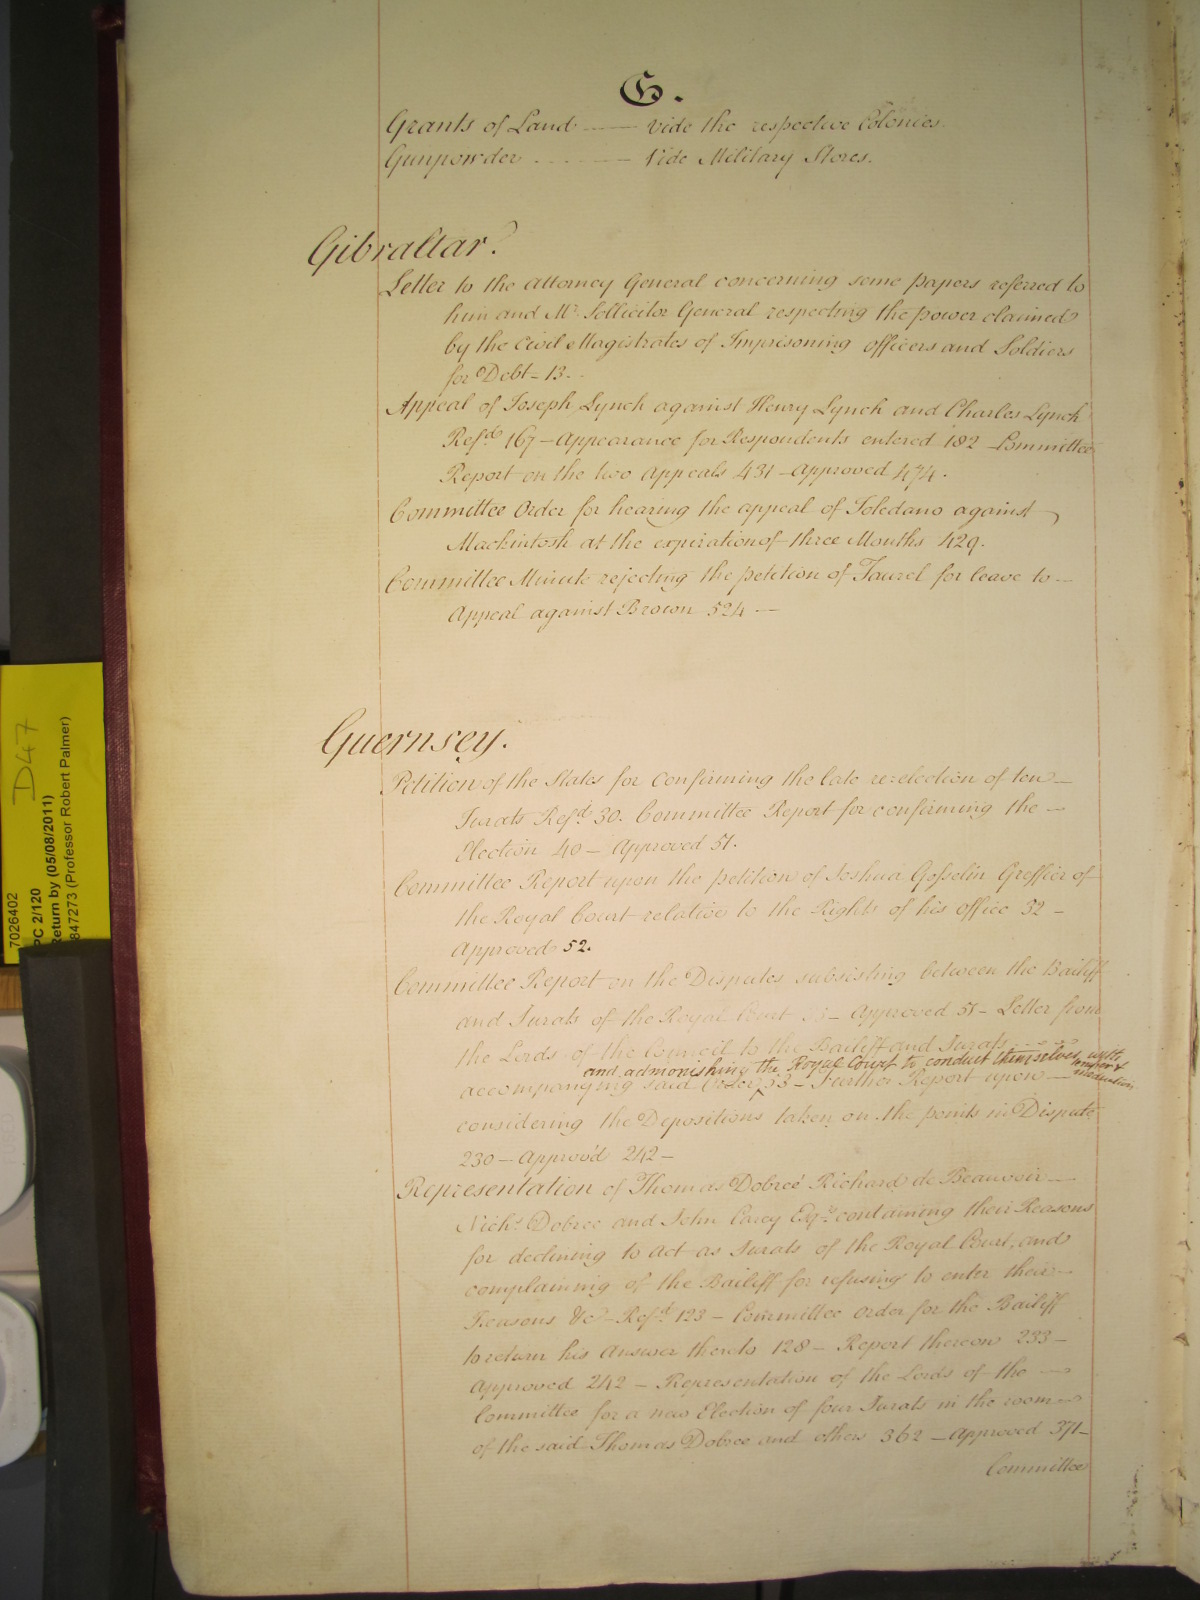 G.
Grants of Land —— vide the respective Colonies.
Gunpowder ..... —— Vide Military Stores.
Gibraltar.
Letter to the Attorney General concerning some papers referred to
him and Mr. Sollicitor General respecting the power claimed
by the Civil Magistrates of Imprisoning Officers and Soldiers
for Debt – 13. -
Appeal of Joseph Lynch against Henry Lynch and Charles Lynch
Refd 167 – Appearance for Respondents entered 182 – Committee
Report on the two Appeals 431 – Approved 474.
Committee Order for hearing the appeal of Toledano against
Mackintosh at the expiration of three Months 429.
Committee Minute rejecting the petition of Taurel for leave to —
Appeal against Brown 524 —
Guernsey.
Petition of the States for confirming the late re-election of ten —
Jurats Refd 30. Committee Report for confirming the —
Election 40 – Approved 51.
Committee Report upon the petition of Joshua Gosselin Greffier of
the Royal Court relative to the Rights of his office 32 –
Approved 52.
Committee Report on the Disputes subsisting between the Bailiff
and Jurats of the Royal Court 33 – Approved 51 – Letter from
the Lords of the Council to the Bailiff and Jurats
and admonishing the Royal Court to conduct themselves with temper & moderation
accompanying said Order ^ 53 – Further Report upon —
considering the Depositions taken on the points in Dispute
230 – Approv'd 242 –
Representation of Thomas Dobreé Richard de Beauvoir —
Nichs. Dobree and John Carey Esqrs. containing their Reasons
for declining to act as Jurats of the Royal Court, and
complaining of the Bailiff for refusing to enter their —
Reasons &c – Refd 123 – Committee order for the Bailiff
to return his Answer thereto 128 – Report thereon 233 –
Approved 242 – Representation of the Lords of the —
Committee for a new Election of four Jurats in the room —
of the said Thomas Dobree and others 362 – Approved 371 –
Committee
7026402
D47
PC 2/120
Return by (05/08/2011)
847273 (Professor Robert Palmer)